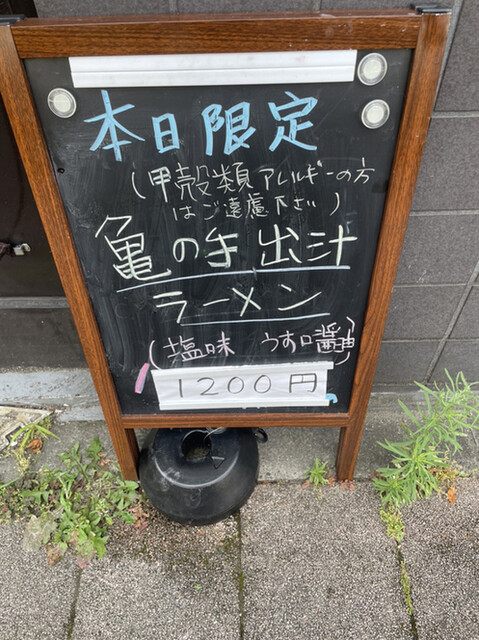 本日限定
(甲殻類アレルギーの方
はご遠慮下さい)
亀の手出汁
ラーメン
(塩味 うす口醤油)
1200円